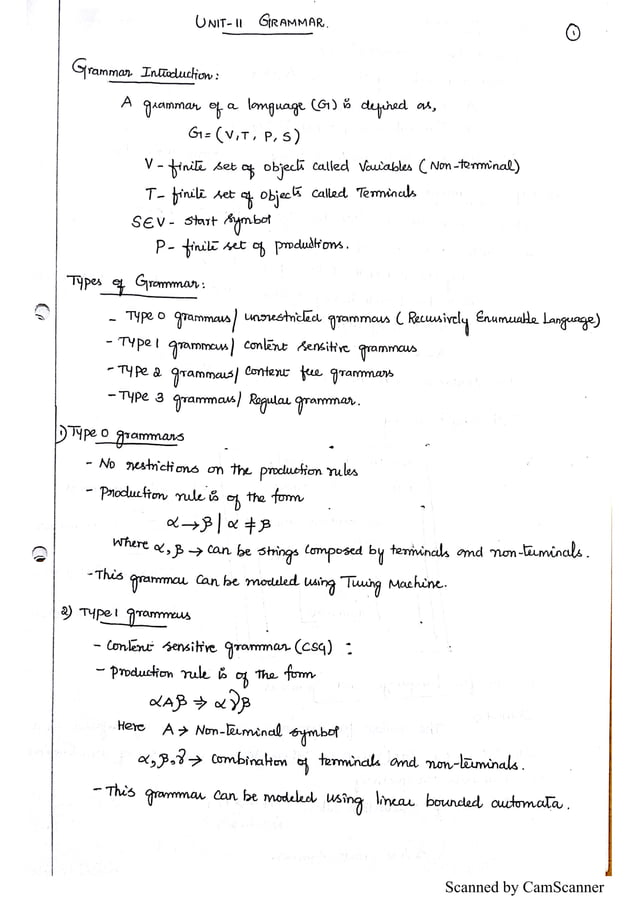 UNIT-II GRAMMAR.
1
Grammar Introduction:
A grammar of a language (G) is defined as,
G = (V, T, P, S)
V - finite set of objects called Variables (Non-terminal)
T - finite set of objects called Terminals
SEV - Start Symbol
P - finite set of productions.
Types of Grammar:
- Type 0 grammars/ unrestricted grammars (Recursively Enumerable Language)
- Type 1 grammars/ Content sensitive grammars
- Type 2 grammars/ Content free grammars
- Type 3 grammars/ Regular grammar.
1) Type 0 grammars
- No restrictions on the production rules
- Production rule is of the form
α → β | α ≠ β
where α, β → can be strings composed by terminals and non-terminals.
- This grammar can be modeled using Turing Machine.
2) Type 1 grammars
- Content sensitive grammar (CSG) :
- Production rule is of the form
αAβ ⇒ αγβ
Here A → Non-terminal symbol
α, β, γ → Combination of terminals and non-terminals.
- This grammar can be modeled using linear bounded automata.
Scanned by CamScanner